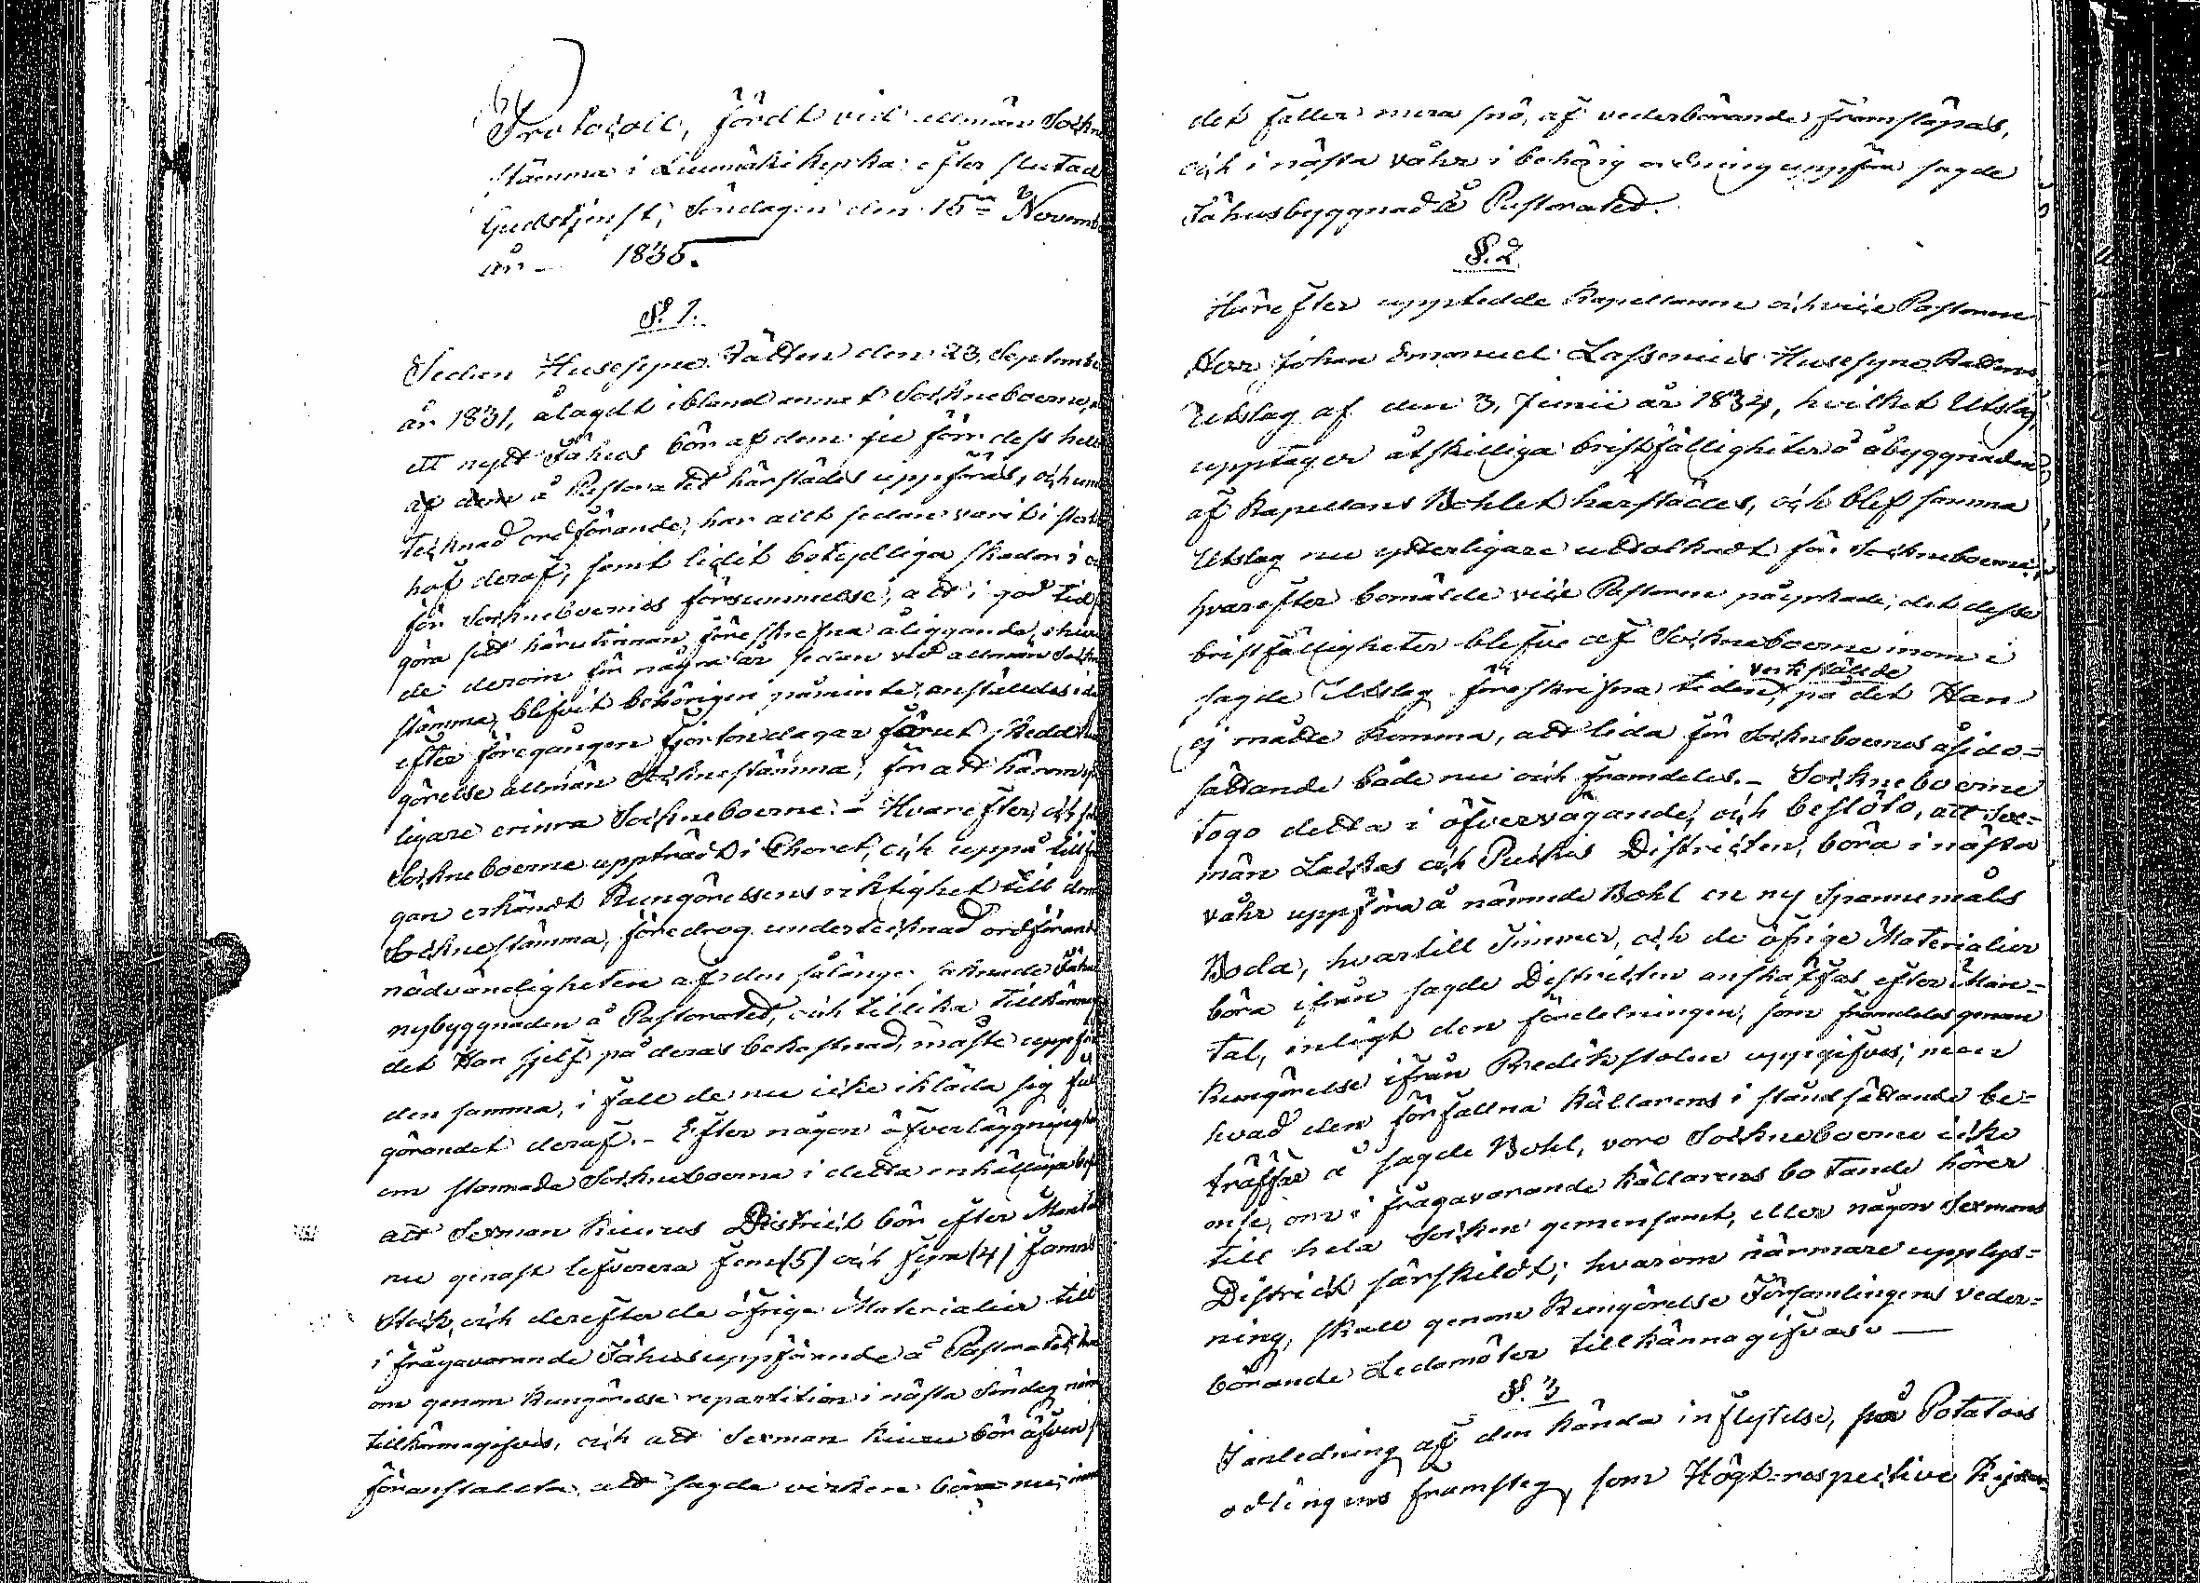 Protocoll, fördt vid allmän Sockne
stämma i Luumäki kyrka efter slutad
Gudstjenst, Söndagen den 15de Novemb
år 1835.
§. 1.
Sedan Husesyns Rätten den 23. Septemb
år 1831, ålagdt ibland annat Sockneboerne,
ett nytt Fähus bör af dem ju förr dess hell
af dem å Pastoratet härstädes uppföras, och un
tecknad ordförande, har allt sedan varit i
haf deraf, samt lidit betydliga skador i
för Sockneboernes försummelse, att i god tid
göra sitt härutinnan föreskrifna åliggande, ehuru
de derom för några år sedan vid allmän Sockne
stämma, blifvit behörigen påminte, anställdes i
efter föregången fjorton dagar förut skedd kun
görelse allmän Socknestämma, för att härom
ligare erinra Sockneboerne. - Hvarefter, och
Sockneboerne uppträdt i Choret, och uppå tillfrå
gan erkändt Kungörelsens riktighet till denna
Socknestämma, föredrog undertecknad ordförande
nödvändigheten af den sålänge saknade Fähus
nybyggnaden å Pastoratet, och tillika tillkännag
det Han sjelf på deras bekostnad, måste uppföra
den samma, i fall de nu icke ikläda sig full
görandet deraf. - Efter någon öfverläggning
om stannade Sockneboerna i detta enhälliga beslut
att Sexman Kiurus District bör efter Mantal
nu genast lefverera fem (5) och fyra (4) famns
Stock, och derefter de öfrige Materialier till
i frågavarande Fähus uppförande å Pastoratet,
om genom Kungörelse repartition i nästa Söndag
tillkännagifves, och att Sexman Kiuru bör äfven
föranstallta, att sagde virken böra nu, innan
det faller mera snö, af vederbörande framsläpas,
och i nästa våhr i behörig ordning uppföra sagde
Fähusbyggnad å Pastoratet.
§. 2.
Härefter upptedde Kapellanen och vice Pastoren
Herr Johan Emanuel Lassenius Husesyns Rättens
Utslag af den 3. Junii år 1834, hvilket Utslag,
upptager åtskilliga bristfälligheter å åbyggnaden
af Kapellans Bohlet härstädes, och blef samma
Utslag nu ytterligare uttolkadt för Sockneboerne,
hvarefter bemälde vice Pastoren påyrkade, det dessa
bristfälligheter blefve af Sockneboerne inom i
sagde Utslag föreskrifna tiden, verkställde på det Han
ej måtte komma, att lida för Sockneboernes åsido-
sättande både nu och framdeles. - Sockneboerne
togo detta i öfvervägande, och beslöto, att Sex-
män Laihas och Pukkis Districten, böra i nästa
våhr uppföra å nämnde Bohl en ny Spannemåls
Boda, hvartill Timmer, och de öfrige Materialier
böra ifrån sagde Districten anskaffas efter Man-
tal, enligt den fördelningen, som framdeles genom
Kungörelse ifrån Predikstolen uppgifves; men
hvad den förfallna källarens i stånd sättande be-
träffar å sagde Bohl, voro Sockneboerne icke
ense, om i frågavarande källarens botande hörer
till hela Socken gemensamt, eller någon Sexmans
District särskildt; hvarom närmare upplys-
ning, skall genom Kungörelse Församlingens veder-
börande Ledamöter tillkännagifvas. -
§. 3.
I anledning af den kända inflytelse, på Potatoes
odlingens framsteg, som Högt-respective